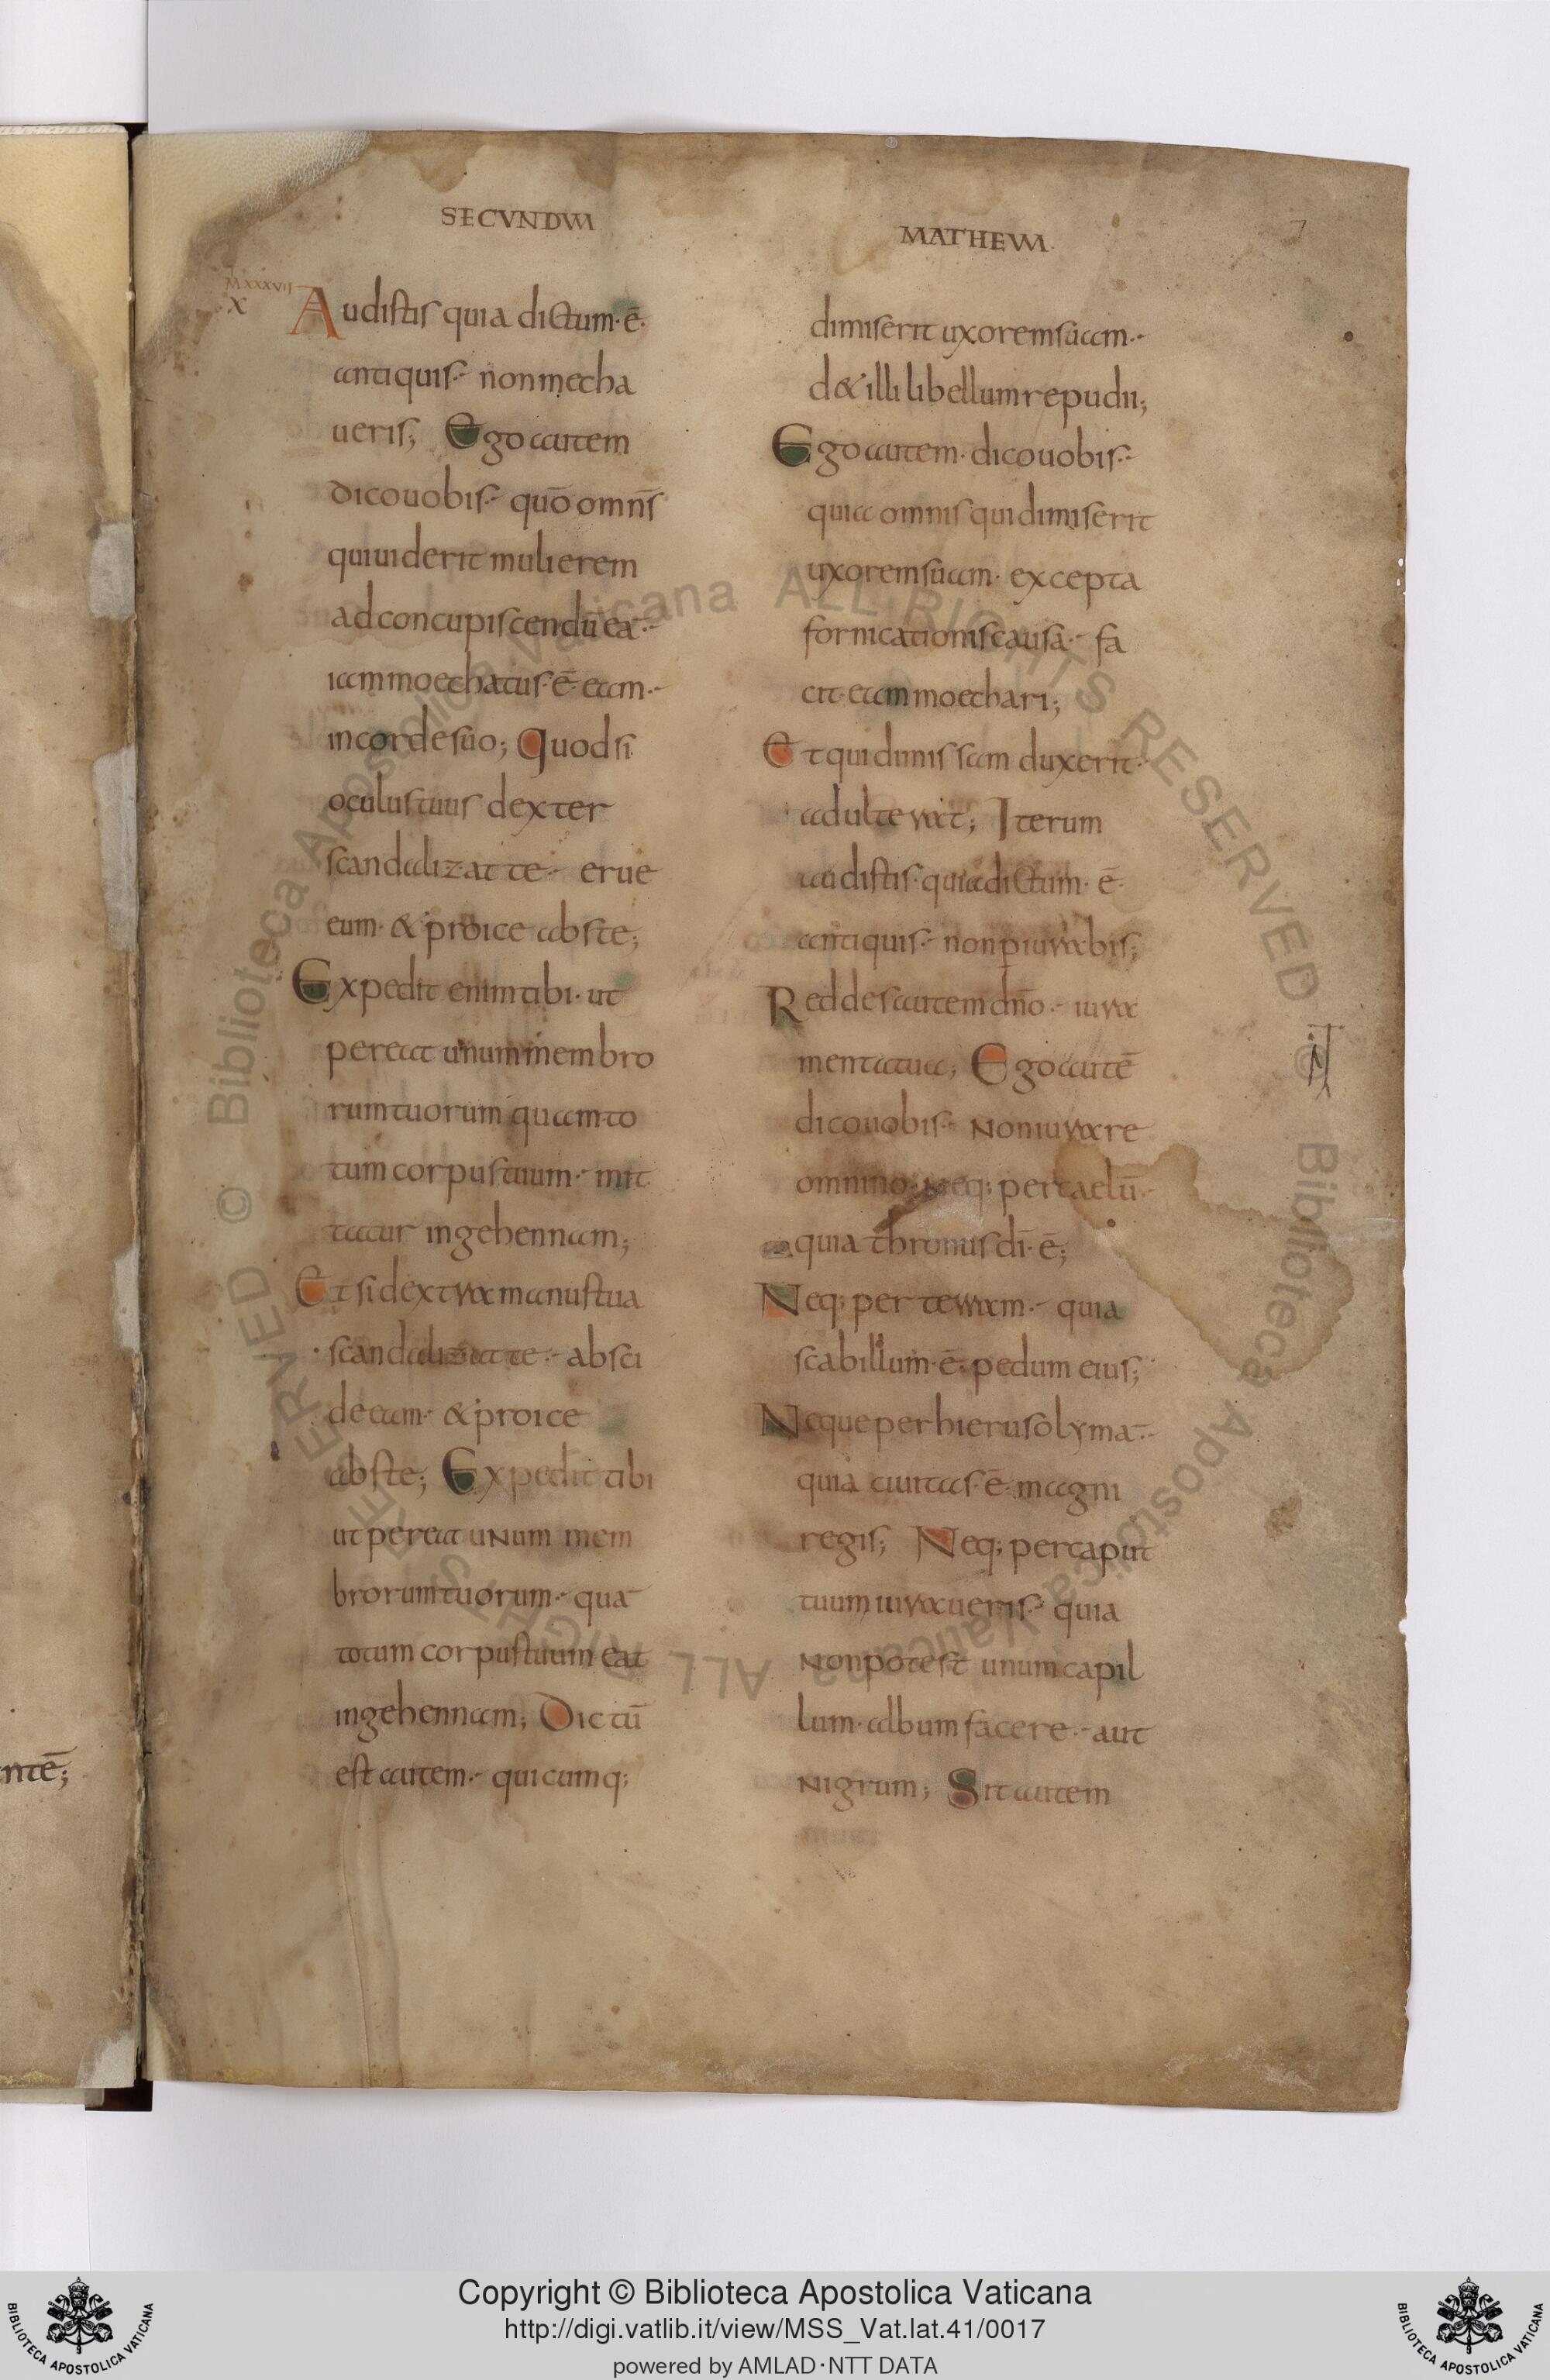 SECVNDVM
MATHEVM
7
MXXXVII
X
Audistis quia dictum· ē·
antiquis·- non mecha
ueris; Ego autem
dico uobis·- quō omnīs
qui uiderit mulierem
ad concupiscendū eā·-
iam moechatus· ē· eam·-
in corde suo; Quod si
oculus tuus dexter
scandalizat te·- erue
eum· & proice abs te;
Expedit enim tibi· ut
pereat unum membro
rum tuorum quam to
tum corpus tuum·- mit
tatur in gehennam;
Et si dextra manus tua
scandalizat te·- absci
de eam·- & proice
abs te; Expedit tibi
ut pereat unum mem
brorum tuorum·- quā
totum corpus tuum eat
in gehennam; Dictū
est autem·- quicumq;
dimiserit uxorem suam·-
d& illi libellum repudii;
Ego autem· dico uobis·-
quia omnis qui dimiserit
uxorem suam· excepta
fornicationis causa·- fa
cit eam moechari;
Et qui dimissam duxerit·-
adulterat; Iterum
audistis· quia dictum· ē·
antiquis·- non piurabis;
Reddes autem dño·- iura
menta tua; Ego autē
dico uobis·- Non iurare
omnino· Neq; per caelū·-
quia thronus dī· ē;
Neq; per terram·- quia
scabillum· ē· pedum eius;
Neque per hierusolyma·-
quia ciuitas· ē· magni
regis; Neq; per caput
tuum iuraueris·- quia
Non potest unum capil
lum· album facere·- aut
Nigrum; Sit autem
ntē;
Copyright © Biblioteca Apostolica Vaticana
http://digi.vatlib.it/view/MSS_Vat.lat.41/0017
powered by AMLAD·NTT DATA
BIBLIOTECA APOSTOLICA VATICANA
BIBLIOTECA APOSTOLICA VATICANA
© Biblioteca Apostolica Vaticana ALL RIGHTS RESERVED © Biblioteca Apostolica Vaticana ALL RIGHTS RESERVED